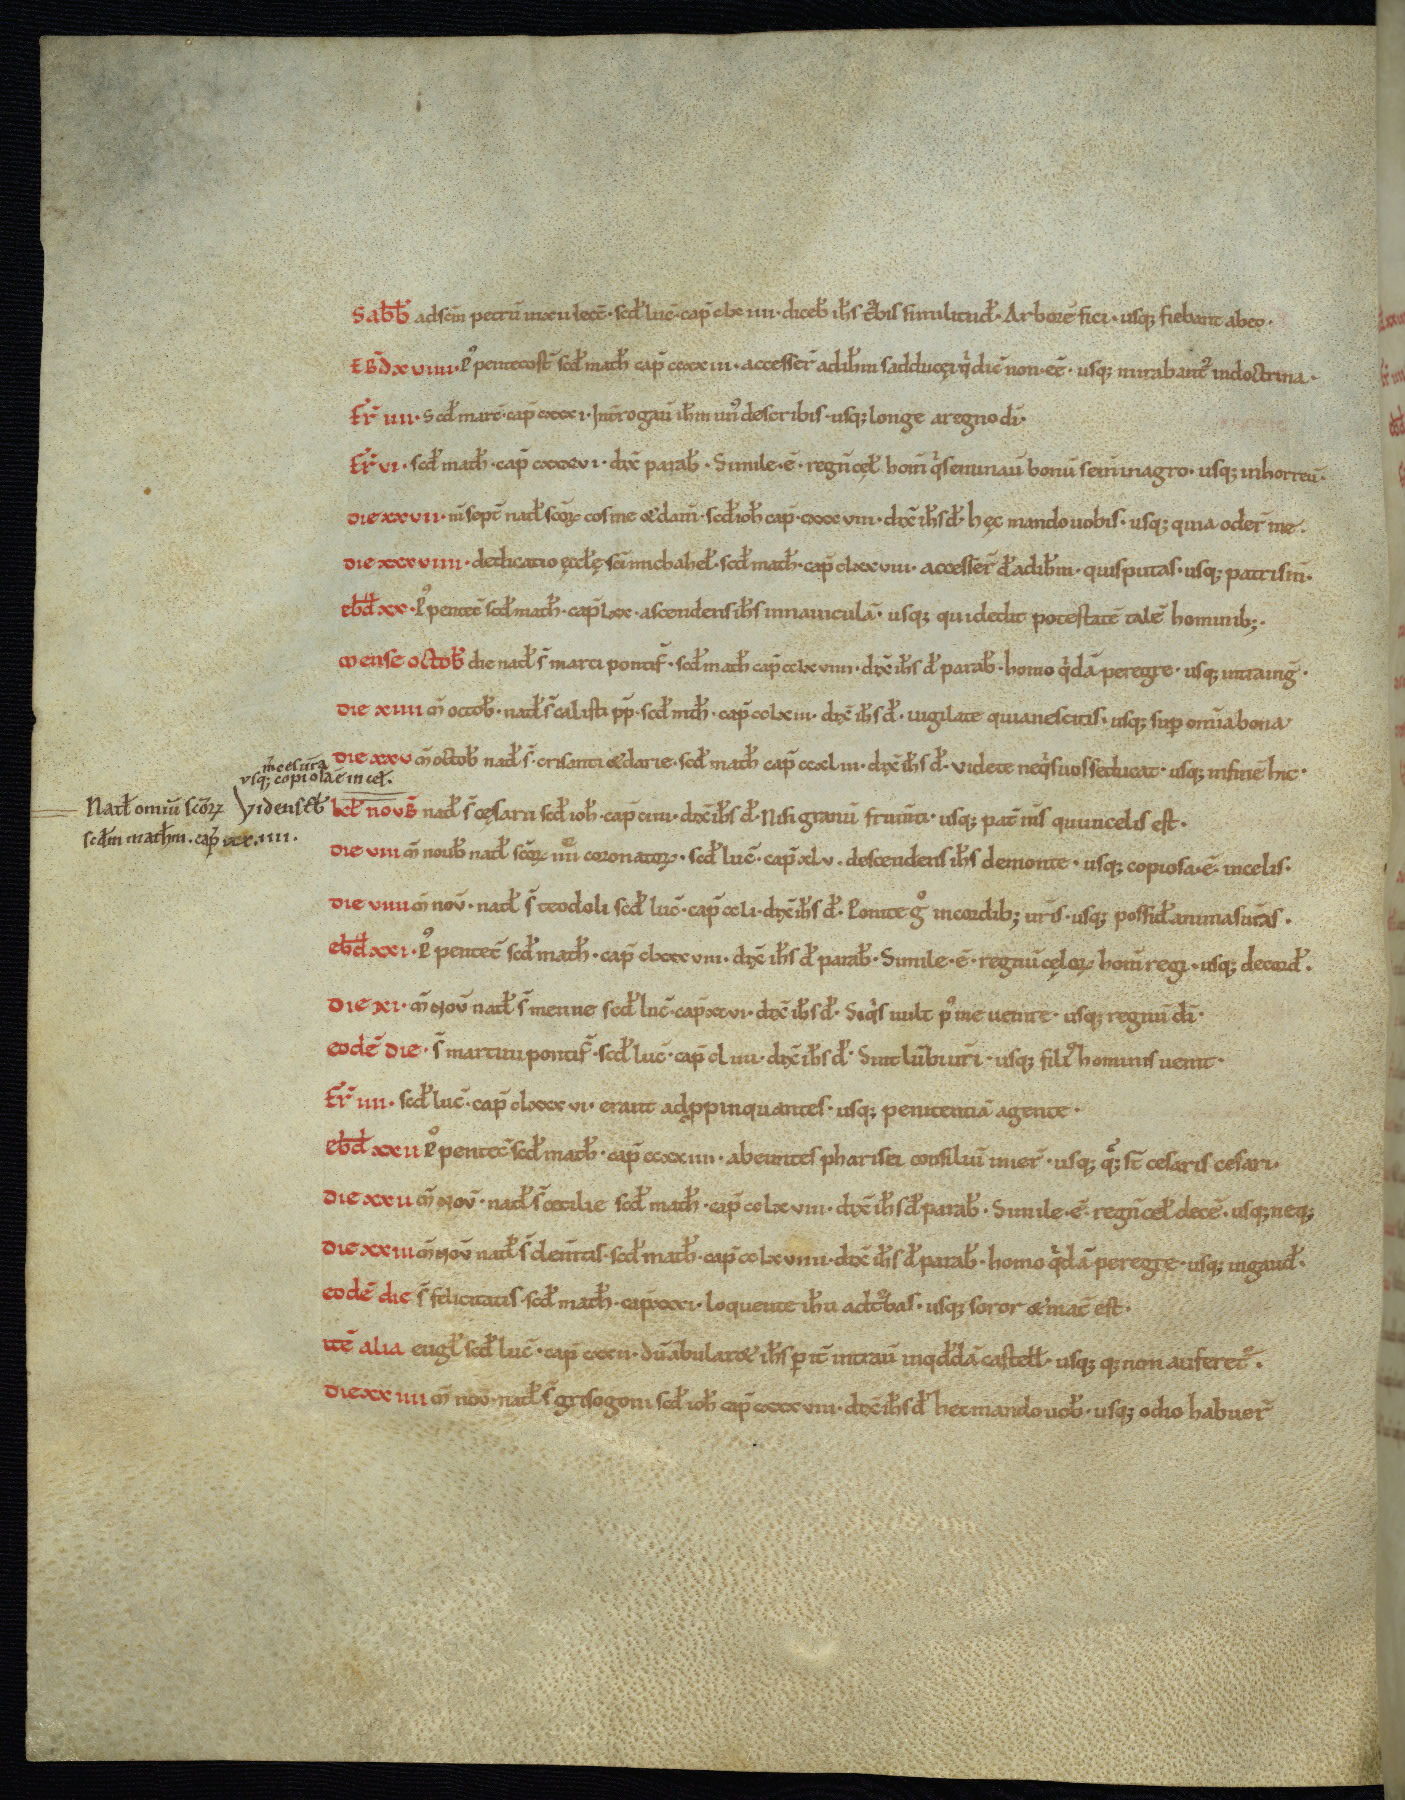 Sabb̄ adscm̄ petrū inxii lecc̄· scd̄ luc̄· cap̄ clx iiii· diceb̄ ih̄s similitud̄· Arborē fici· usq; fiebant abeo·
EBD̄ x viiii· P᷒ pentecost̄ scd̄ math̄ cap̄ ccxx iii· accesser̄ adih̄m sadducęi q̄ dic̄ non·eē· usq; mirabant᷒ indoctrina·
Fr̄ iiii· scd̄ marc̄· cap̄ cxxx i· Int̄rogau̅ ih̄m un᷒ describis· usq; longe aregno dī·
Fr̄ vi· scd̄ math̄· cap̄ cxxxvi· dix̄ parab̄· Simile·ē· regn̄ cęl̄ hom̄ q̄seminau̅ bonū sem̄ inagro· usq; inhorreū·
Die xx vii· m̄ sept̄ nat̄ scōꝝ cosme &dam̄· scd̄ ioh̄ cap̄· cxxx viii· dix̄ ih̄s d̄· hęc mando uobis· usq; quia oder̄ me·
Die xxx viiii· dedicatio ęccłę scī michahel̄· scd̄ math̄· cap̄ clxx viii· accesser̄ d̄ adih̄m· quisputas· usq; patrism̄·
ebd̄ xx· P᷒ pentec̄ scd̄ math̄· cap̄ lxx· ascendens ih̄s innauiculā· usq; qui dedit potestatē talē hominib;·
Mense octob̄ die nat̄ s̄ marci pontif̄· scd̄ math̄ cap̄ cclx viiii· dix̄ ih̄s d̄ parab̄· homo q̄dā peregre· usq; intrainḡ·
Die xiiii m̄ octob̄· nat̄ s̄ calisti pp̄· scd̄ mth̄· cap̄ cclx iii· dix̄ ih̄s d̄· uigilate quianescitis· usq; sup̄ om̄ia bona
Die xx v m̄ octob̄ nat̄ s̄· crisanti &darie· scd̄ math̄ cap̄ ccxl iii· dix̄ ih̄s d̄· videte neq̄suosseducat· usq; infinē hic·
m̄cesūra
vsq; copiosa ē in cel̄·
Nat̄ omiū scōꝝ Videns
scd̄m mathm̄· cap̄ xx·iiii·
kl̄ novb̄ nat̄ s̄ cęsarii scd̄ ioh̄· cap̄ ciiii· dix̄ ih̄s d̄· Nisi granū frum̄ti· usq; pat̄ m̄s quiincelis est·
Die viii m̄ noub̄ nat̄ scōꝝ iiii coronatoꝝ· scd̄ luc̄· cap̄ xl v· descendens ih̄s demonte· usq; copiosa·ē· incelis·
Die viiii m̄ nov̄· nat̄ s̄ teodoli scd̄ luc̄· cap̄ ccli· dix̄ ih̄s d̄· Ponite g᷒ incordib; ur̄is· usq; possid̄ animasur̄as·
ebd̄ xxi· P᷒ pentec̄ scd̄ math̄· cap̄ clxxx viii· dix̄ ih̄s d̄ parab̄· Simile·ē· regnū cęloꝝ hom̄ regi· usq; decord̄·
Die xi· m̄ Nov̄ nat̄ s̄ menne scd̄ luc̄· cap̄ xcvi· dix̄ ih̄s d̄· Siq̄s uult p᷒ me uenire· usq; regnū dī·
eodē die· s̄ martini pontif̄· scd̄ luc̄· cap̄ cl iiii· dix̄ ih̄s d̄· Sint lūbi ur̄i· usq; fili᷒ hominis uenit·
Fr̄ iiii· scd̄ luc̄· cap̄ clxxx vi· erant adp̄ppinquantes· usq; penitentiā agente·
ebd̄ xx ii P᷒ pentec̄ scd̄ math̄· cap̄ ccxx iiii· abeuntes pharisei consiliū inier̄· usq; q̄; st̄ cesaris cesari·
Die xx ii m̄ Nov̄· nat̄ s̄ cecilie scd̄ math̄· cap̄ cclx viii· dix̄ ih̄s d̄ parab̄· Simile·ē· regn̄ cel̄ decē· usq; neq;
Die xx iii m̄ Nov̄ nat̄ s̄ clem̄tis· scd̄ math̄· cap̄ cclx viiii· dix̄ ih̄s d̄ parab̄· homo q̄dā peregre· usq; ingaud̄·
eodē die s̄ felicitatis· scd̄ math̄· cap̄ cxxxi· loquente ih̄u adt᷒bas· usq; soror &mat̄ est·
itē alia eugl̄ scd̄ luc̄· cap̄ cxx ii· dū ābular& ih̄s p̄ it̄ intrau̅ inqd̄dā castell̄· usq; q; non auferet᷒·
Die xx iiii m̄ nov̄· nat̄ s̄ grisogoni scd̄ ioh̄ cap̄ cxxx viii· dix̄ ih̄s d̄ hec mando uob̄· usq; odio habuer̄